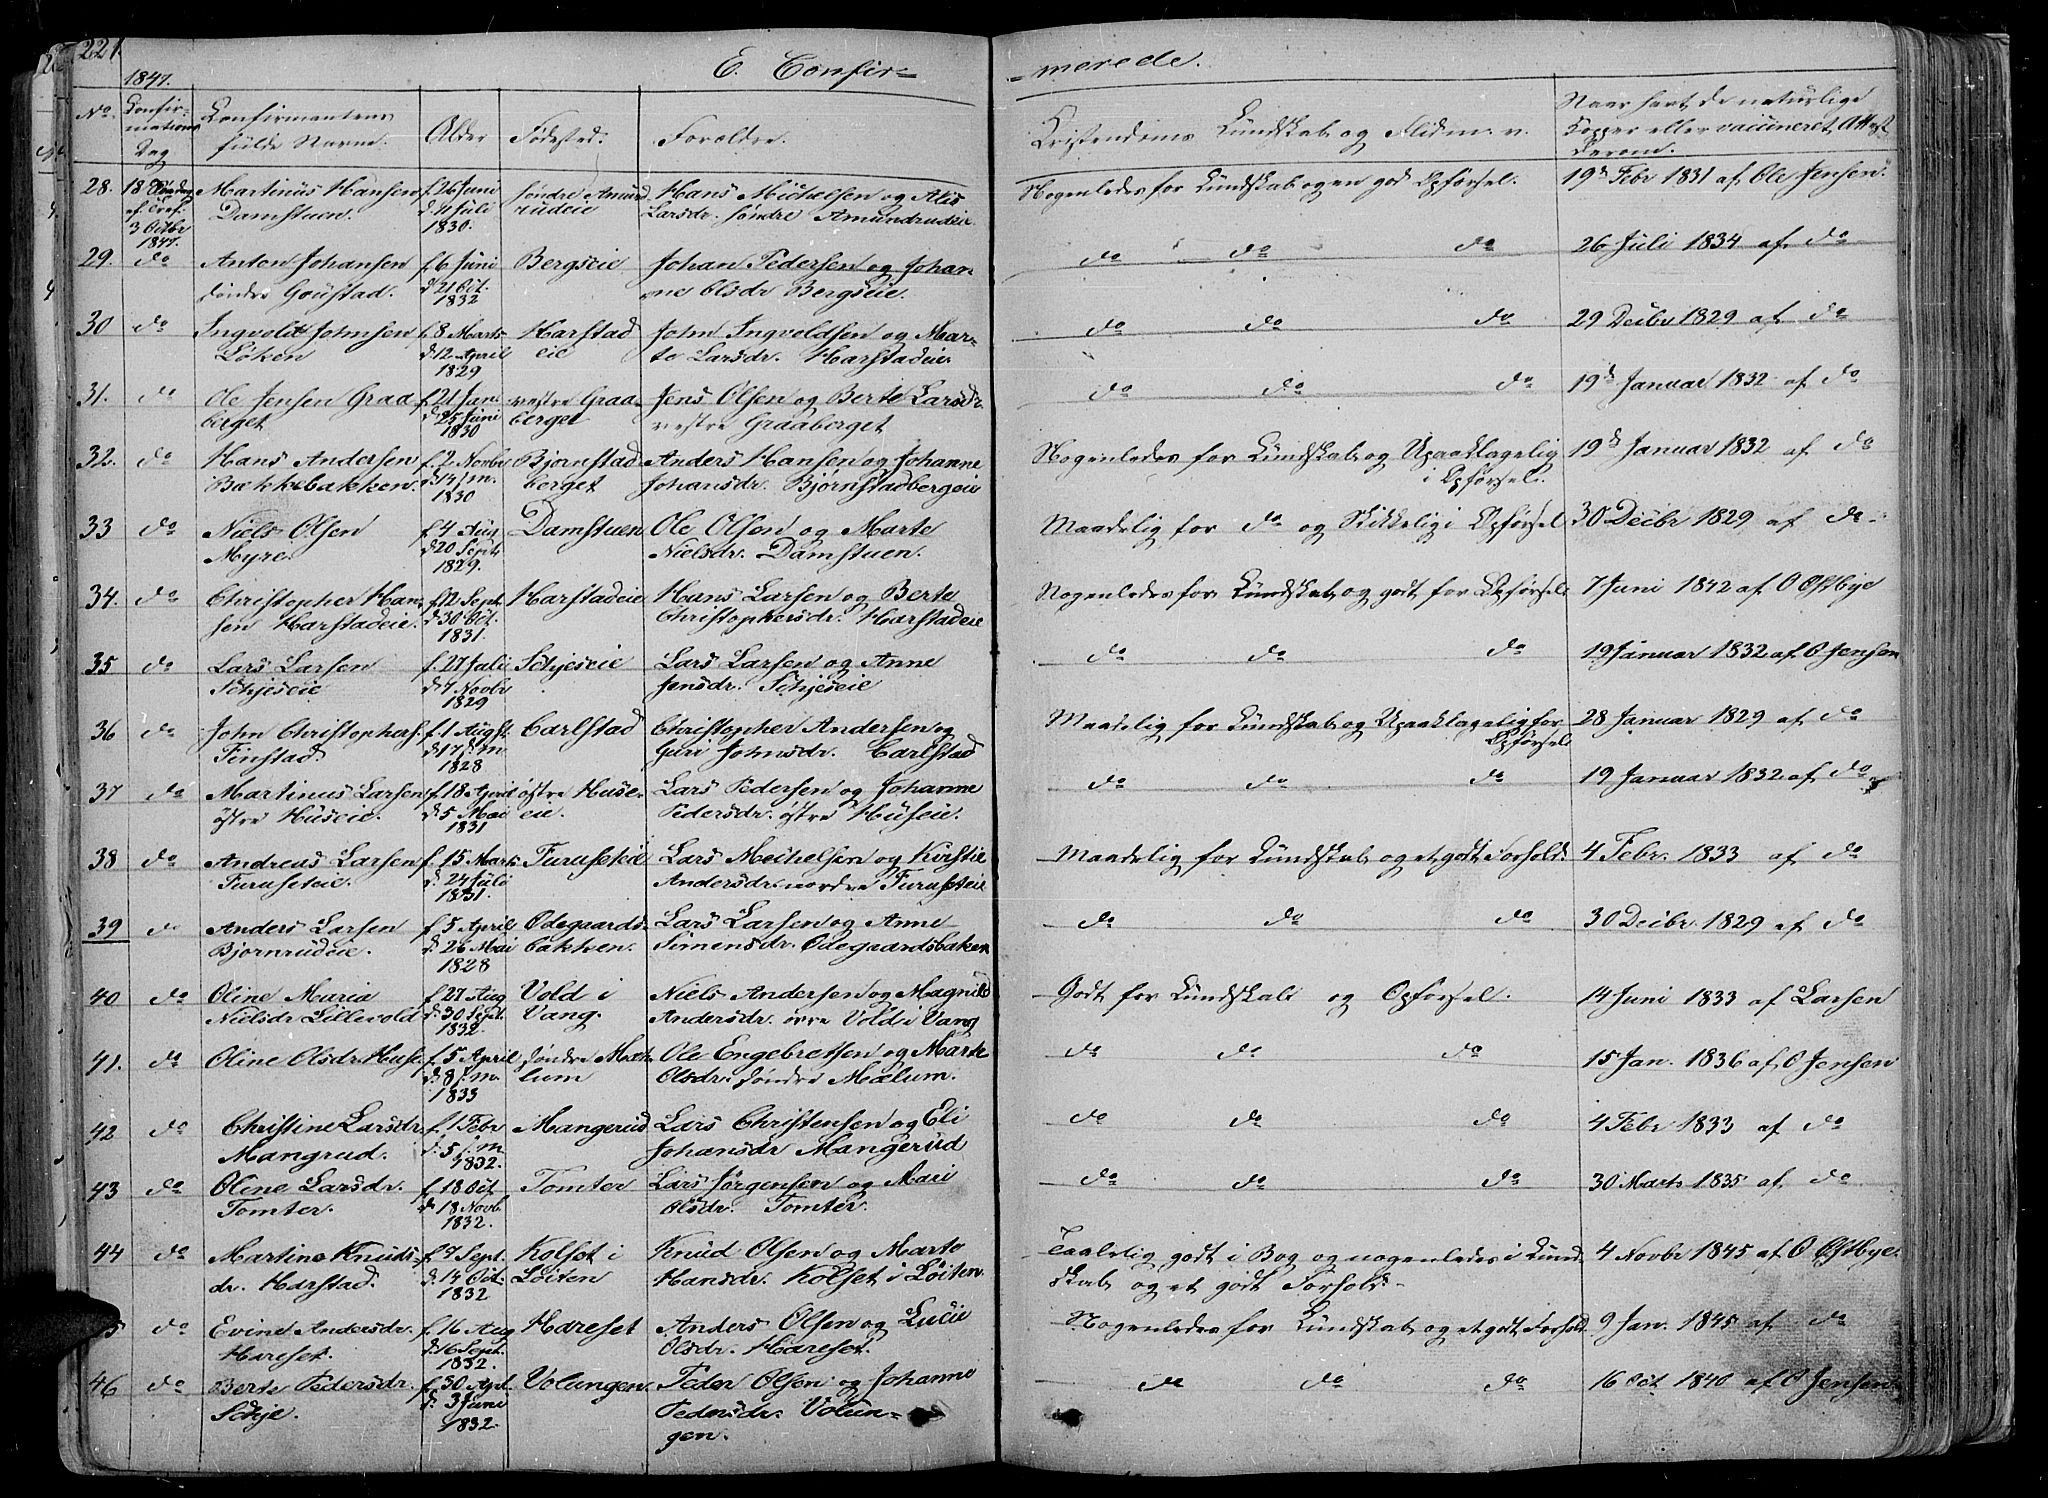 221.
1847.
E. Confir=
=merede.
No.
Confir=
mations
Dag
Confirmantens
fulde Navne.
Alder
Fødested.
Forældre.
Kristendoms Kundskab og Flid m. v.
Naar havt de naturlige
Kopper eller vaccineret, Attest
derom.
28.
18 Søndag
ef. Tref.
3 Octbr
1847.
Martinus Hansen
Damstuen.
f. 26 Juni
d. 11 Juli
1830.
søndre Amund
rudeie
Hans Michelsen og Alis
Larsdr. søndre Amundrudeie
Nogenledes for Kundskab og en god Opførsel.
19de Febr 1831 af Ole Jensen.
29.
do
Anton Johansen
søndre Goustad.
f. 6 Juni
d. 21 Oct.
1832
Bergseie
Johan Pedersen og Johan
ne Olsdr Bergseie.
do do do
26 Juli 1834 af do
30
do
Ingvold Johnsen
Løken
f. 8 Marts
d. 12 April
1829
Harstad
eie
John Ingvoldsen og Mar=
te Larsdr. Harstadeie
do do do
29 Decbr 1829 af do
31.
do
Ole Jensen Graa
berget
f. 21 Jan.
d. 25 Juni
1830
vestre Graa
berget
Jens Olsen og Berte Larsdr
vestre Graaberget
do do do
19de Januar 1832 af do
32.
do
Hans Andersen
Bækkebakken.
f. 2 Novbr
d. 14 f. m.
1830
Bjørnstad
berget
Anders Hansen og Johanne
Johansdr. Bjørnstadbergeie
Nogenledes for Kundskab og Upaaklagelig
i Opførsel.
19de Januar 1832 af do
33
do
Niels Olsen
Myre.
f. 4 Aug
d. 20 Sept.
1829.
Damstuen
Ole Olsen og Marte
Nielsdr. Damstuen.
Maadelig for do og Skikkelig i Opførsel
30 Decbr 1829 af do
34.
do
Christopher Han
sen Harstadeie.
f. 12 Sept.
d. 30 Oct.
1831.
Harstadeie
Hans Larsen og Berte
Christophersdr. Harstadeie
Nogenledes for Kundskab og godt for Opførsel
7 Juni 1842 af O Østbye
35
do
Lars Larsen
Schjeseie
f. 27 Juli
d. 7 Novbr
1829
Schjeseie
Lars Larsen og Anne
Jensdr. Schjeseie
do do do
19 Januar 1832 af O Jensen
36
do
John Christophers.
Finstad.
f. 1 Augst
d. 17 f. m
1828
Carlstad
Christopher Andersen og
Guri Johnsdr. Carlstad
Maadelig for Kundskab og Upaaklagelig for
Opførsel
28 Januar 1829 af do
37
do
Martinus Larsen
østre Huseie.
f. 18 April
d. 5 Mai
1831
østre Huse-
eie.
Lars Pedersen og Johanne
Pedersdr. østre Huseie.
do do do
19 Januar 1832 af do
38
do
Andreas Larsen
Furuseteie.
f. 15 Marts
d. 24 Juli
1831.
Furuseteie
Lars Michelsen og Kirstie
Andersdr. nordre Furuseteie
Maadelig for Kundskab og et godt Forhold.
4 Febr. 1833 af do
39
do
Anders Larsen
Bjørnrudeie.
f. 5 April
d. 26 Mai
1828
Ødegaards
bakken.
Lars Larsen og Anne
Simensdr. Ødegaardsbaken
do do do
30 Decbr. 1829 af do
40
do
Oline Maria
Nielsdr Lillevold
f. 27 Aug
d. 30 Sept.
1832.
Vold i
Vang.
Niels Andersen og Magnild
Andersdr. øvre Vold i Vang
Godt for Kundskab og Opførsel.
14 Juni 1833 af Larsen
41.
do
Oline Olsdr. Huse
f. 5 April
d. 8 f. m.
1833
søndre Mæ-
lum
Ole Engebretsen og Marte
Olsdr. søndre Mælum.
do do do
15 Jan. 1836 af O Jensen
42
do
Christine Larsdr
Mangrud.
f. 1 Febr
d. 5 f. m
1832.
Mangerud
Lars Christensen og Eli
Johansdr Mangerud
do do do
4 Febr 1833 af do
43
do
Oline Larsdr.
Tomter.
f. 18 Oct
d. 18 Novb.
1832.
Tomter
Lars Jørgensen og Mari
Olsdr. Tomter.
do do do
30 Marts 1835 af do
44
do
Martine Knuds-
dr. Harstad.
f. 7 Sept.
d. 14 Oct.
1832
Kolset i
Løiten
Knud Olsen og Marte
Hansdr. Kolset i Løiten
Taalelig godt i Bog og nogenledes i Kund
skab og et godt Forhold.
4 Novbr 1845 af O Østbye.
5
do
Evine Andersdr.
Hareset.
f. 16 Aug
d. 16 Sept.
1832.
Hareset
Anders Olsen og Lucie
Olsdr. Hareset.
Nogenledes for Kundskab og et godt Forhold.
9 Jan. 1845 af do
46
do
Berte Pedersdr.
Schje.
f. 30 Apl.
d. 3 Juni
1832.
Volungen
Peder Olsen og Johanne
Pedersdr. Volun=
gen.
do do do
16 Oct 1840 af O Jensen